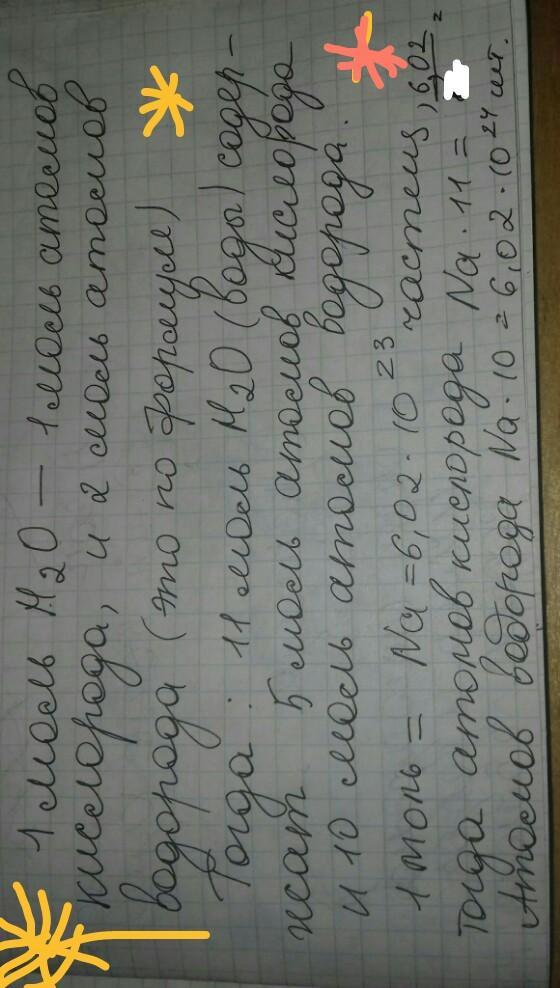 1 моль H2O — 1 моль атомов
кислорода, и 2 моль атомов
водорода (это по формуле)
Тогда: 11 моль H2O (воды) содер-
жат 5 моль атомов кислорода
и 10 моль атомов водорода.
1 моль = Na = 6,02 · 10 23 частиц, 6,02
Тогда атомов кислорода Na · 11 =
Атомов водорода Na · 10 = 6,02 · 10 24 шт.